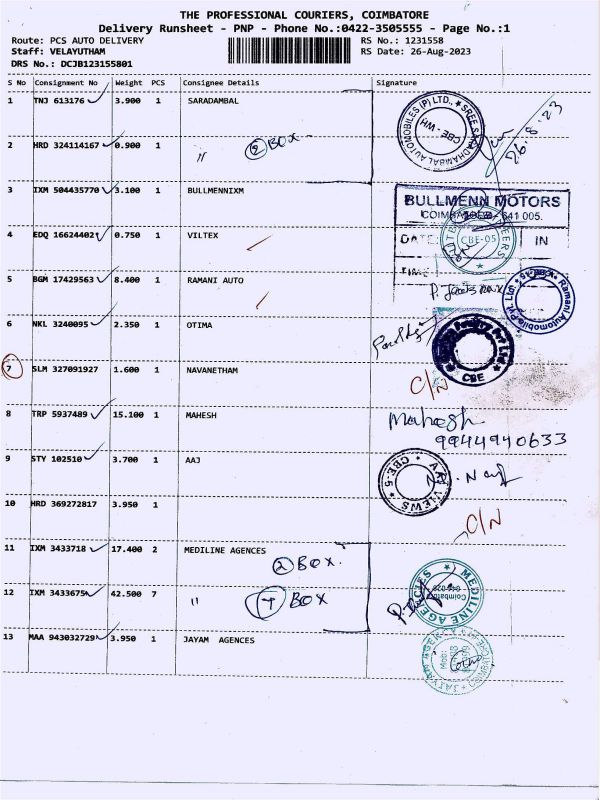 THE PROFESSIONAL COURIERS, COIMBATORE
Delivery Runsheet - PNP - Phone No.:0422-3505555 - Page No.:1
Route: PCS AUTO DELIVERY RS No.: 1231558
Staff: VELAYUTHAM RS Date: 26-Aug-2023
DRS No.: DCJB123155801
S No Consignment No Weight PCS Consignee Details Signature
1 TNJ 613176 3.900 1 SARADAMBAL
2 HRD 324114167 0.900 1 " 2 BOX
CBE-WH
26.8.23
3 IXM 504435770 3.100 1 BULLMENNIXM
BULLMENN MOTORS
COIMBATORE - 641 005.
4 EDQ 16624402 0.750 1 VILTEX
DATE: CBE-05 IN
TIME
5 BGM 17429563 8.400 1 RAMANI AUTO
Ramani Automobile Pvt. Ltd.
6 NKL 3240095 2.350 1 OTIMA
CBE
7 SLM 327091927 1.600 1 NAVANETHAM
C/N
8 TRP 5937489 15.100 1 MAHESH
Mahesh
9944940633
9 STY 102510 3.700 1 AAJ
CBE-5
10 HRD 369272817 3.950 1
C/N
11 IXM 3433718 17.400 2 MEDILINE AGENCES
2 BOX.
12 IXM 3433675 42.500 7 " 7 BOX
MEDILINE AGENCIES
Coimbatore
13 MAA 943032729 3.950 1 JAYAM AGENCES